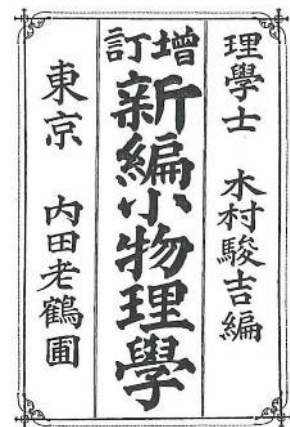 理學士 木村駿吉編
增訂
新編小物理學
東京 内田老鶴圃